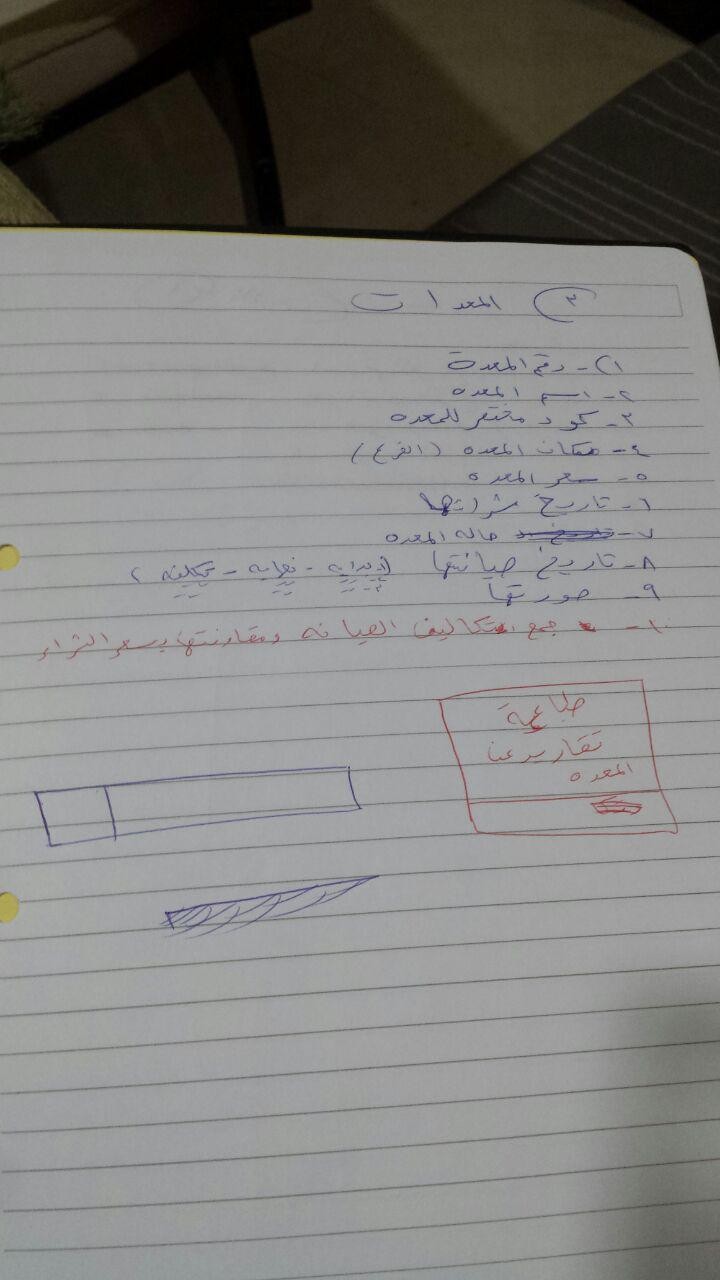 ٣) المعدات
١)- رقم المعدة
٢- اسم المعده
٣- كود مختصر للمعده
٤- مكان المعده (الفرع)
٥- سعر المعده
٦- تاريخ شرائها
٧- حاله المعده
٨- تاريخ صيانتها (بدايه - نهايه - تكلفه)
٩- صورتها
١٠- جمع تكاليف الصيانه ومقارنتها بسعر الشراء
طباعة
تقارير عن
المعده